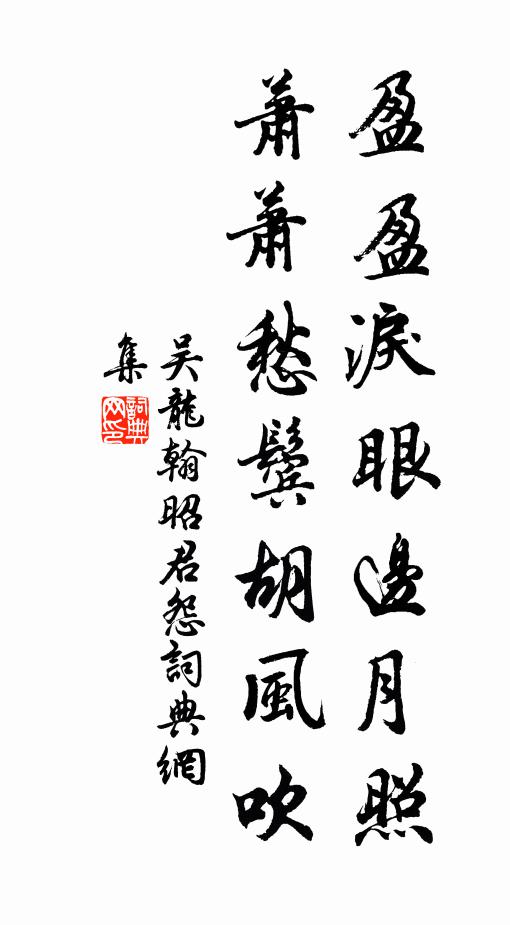 盈盈淚眼邊月照
蕭蕭愁鬢胡風吹
吴龍翰昭君怨詞典網
集
詞典
网印